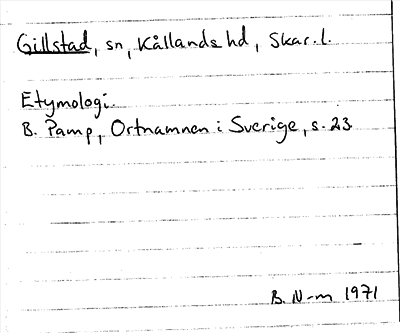 Gillstad, sn, Kållands hd, Skar. l.
Etymologi.
B. Pamp, Ortnamnen i Sverige, s. 23
B. N-m 1971